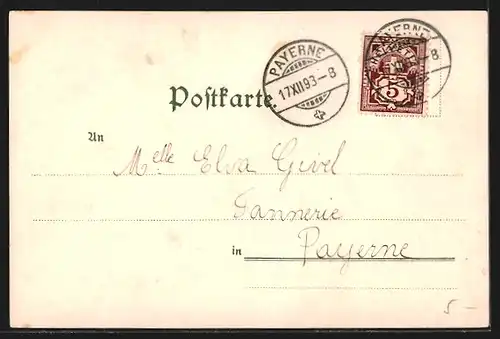 PAYERNE
17.XII.93–8
PAYERNE
8
5
Postkarte.
An
Melle Elva Givel
Tannerie
in Payerne
5 –